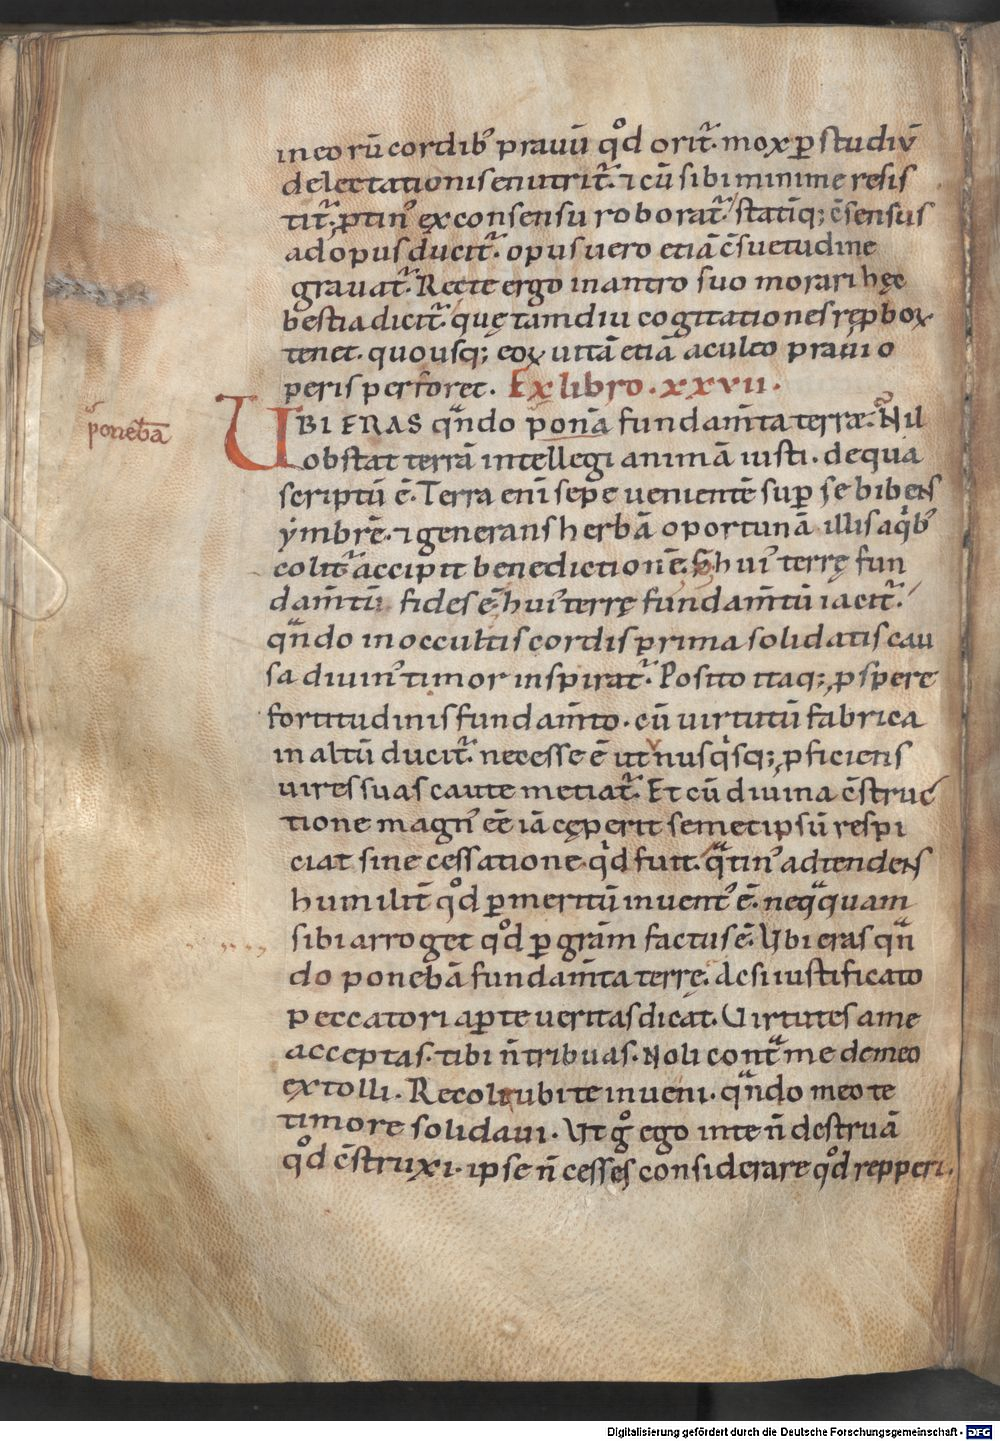 in eorū cordib' prauū qd̊ orit᷑. mox ꝑ studiū
delectationis enutrit᷑. ⁊ cū sibi minime resis
tit᷑. ꝓtin' ex consensu roborat᷑. statīq; c̄sensus
ad opus ducit᷑. opus uero etiā c̄suetudine
grauat᷑. Recte ergo in antro suo morari hęc
bestia dicit᷑. quę tamdiu cogitationes rep̱boꝝ
tenet. quousq; eoꝝ uitā etiā aculeo praui o
peris perforet. Ex libro. xxvii.
UBI ERAS qn̄do ponā fundam̄ta terræ. Nil
poneb̄a
obstat terrā intellegi animā iusti. de qua
scriptū ē. Terra eni sepe uenientē sup̱ se bibens
ymbrē. ⁊ generans herbā oportunā illis a qͥb'
colit᷑ accipit benedictionē. S; hui' terrę fun
dam̄tū fides ē. hui' terrę fundam̄tū iacit᷑.
qn̄do in occultis cordis prima solidatis cau
sa diuin' timor inspirat᷑. Posito itaq; ꝓspere
fortitudinis fundam̄to. cū uirtutū fabrica
in altū ducit᷑. necesse ē ut unusqͥsq; ꝓficiens
uires suas caute metiat᷑. Et cū diuina c̄struc
tione magn' eē iā cęperit semetipsū respi
ciat sine cessatione. qd̊ fuit. qͣtin' adtendens
humilit̄ qd̊ ꝑ meritū inuent' ē. neqͣquam
sibi arroget qd̊ ꝑ grām factus ē. Vbi eras qn̄
do ponebā fundam̄ta terrę. Ac si iustificato
peccatori aꝑte ueritas dicat. Uirtutes a me
acceptas. tibi n̄ tribuas. Noli contͣ me de meo
extolli. Recole ubi te inueni. qn̄do meo te
timore solidaui. Vt g̊ ego in te n̄ destruā
qd̊ c̄struxi. ipse n̄ cesses considerare qd̊ repperi.
Digitalisierung gefördert durch die Deutsche Forschungsgemeinschaft - DFG